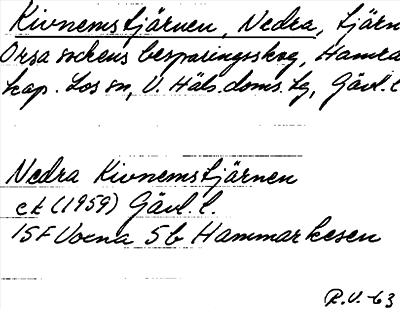 Kivnemstjärnen, Nedra, tjärn
Orsa sockens besparingsskog, Hamra
kap. Los sn, V. Häls. doms. lg, Gävl. l
Nedra Kivnemstjärnen
ek (1959) Gävl l.
15F Voxna 5b Hammarkesen
R.V. -63